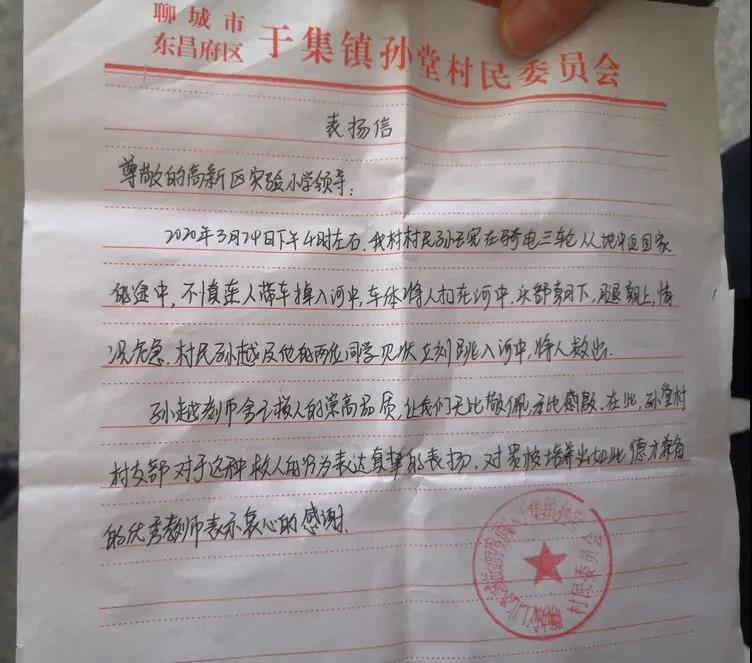 聊城市
东昌府区 于集镇孙堂村民委员会
表扬信
尊敬的高新区实验小学领导:
2020年3月29日下午4时左右,我村村民孙玉宪在骑电三轮从地中返回家
的途中,不慎连人带车掉入河中,车体将人扣在河中,头部朝下,腿朝上,情
况危急,村民孙越及他的两位同学见状立刻跳入河中,将人救出.
孙越老师舍己救人的崇高品质,让我们无比敬佩,无比感激,在此,孙堂村
村支部对于这种救人的行为表达真挚的表扬,对贵校培养出如此德才兼备
的优秀教师表示衷心的感谢.
村民委员会